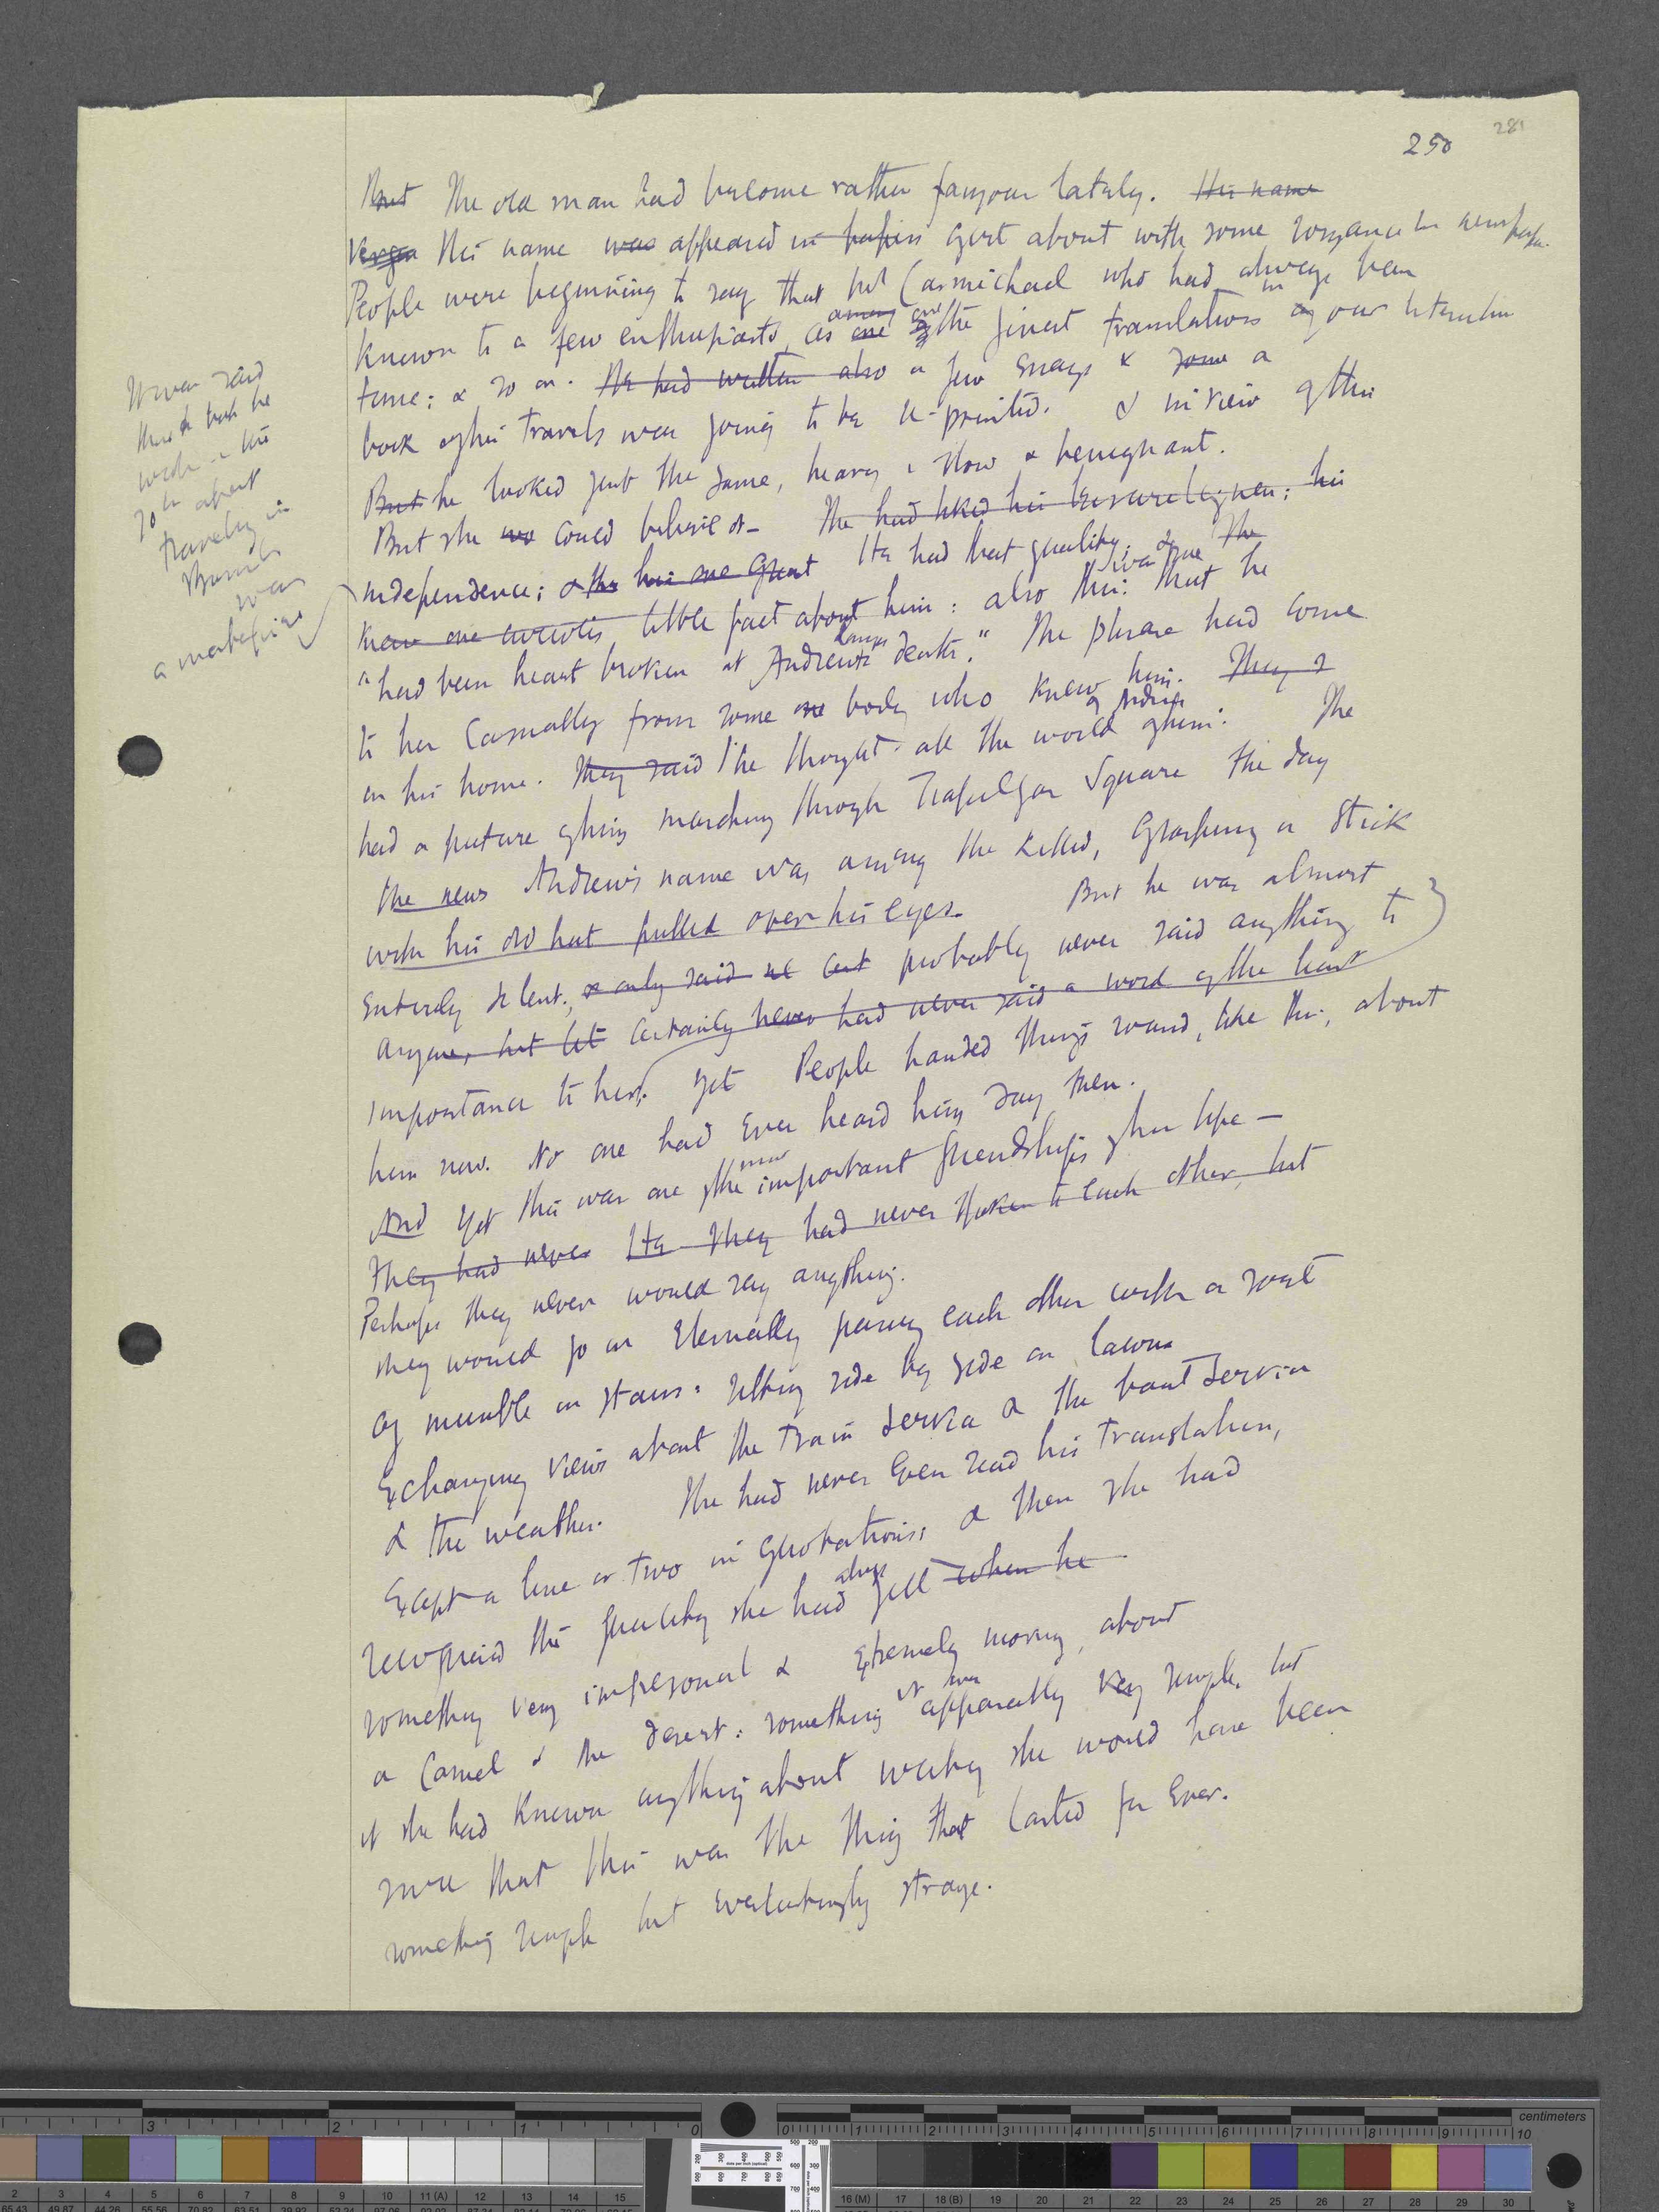 250
281
But The old man had become rather famous lately. His name
His name was appeared in papers girt about with some romance in newspapers.
People were beginning to say that Carmichael who had always been
known to a few enthusiasts, as one among one of the finest translations in of our literature
time; & so on. He had written also a few essays & some a
book of his travels was going to be re-printed. & in view of this
But he looked just the same, heavy, slow & benignant.
But she could believe it - She had liked his
independence; & this his one great He had that quality; She
knew one curious, little fact about him: also this: that he
"had been heart broken at Andrew's death." The phrase had come
to her casually from some one body who knew him. They
in his home. They said "he thought all the world of him. of Andrew She
had a picture of him marching through Trafalgar Square the day
the news Andrew's name was among the killed, grasping a stick
with his old hat pulled over his eyes. But he was almost
entirely silent; & only said probably never said anything to
anyone, but certainly never had never said a word of the least
importance to her. Yet People handed things round, like this, about
him now. No one had ever heard him say them.
And Yet this was one of the most important friendships of her life -
They had never He They had never spoken to each other, but
Perhaps they never would say anything.
They would go on eternally passing each other with a sort
of mumble on stairs: sitting side by side on lawns
Exchanging views about the train service & the boat service
& the weather. She had never even read his translation,
Except a line or two in quotations; & then she had
recognised the quality she had always felt when he
something very impersonal & extremely moving, about
a camel & the desert: something it was apparently very simple, but
if she had known anything about writing she would have been
sure that this was the thing that lasted for ever.
something simple but everlastingly strange.
It was said
that
travelling in
was
a masterpiece